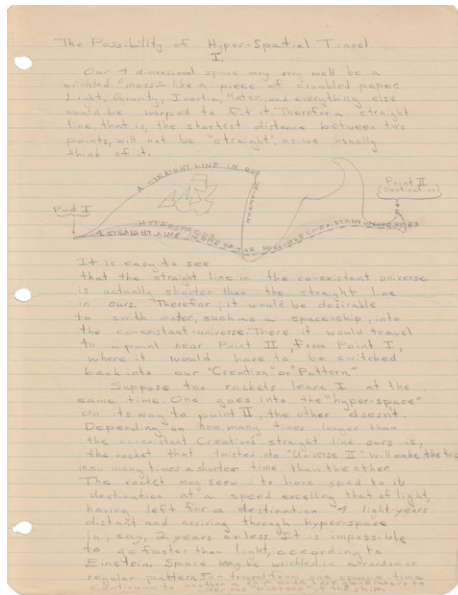 The Possibility of Hyper-Spatial Travel
I.
Our 4 dimensional space may very well be a
wrinkled "mass" like a piece of crumbled paper.
Light, Gravity, Inertia, Mater, and everything else
would be warped to fit it. Therefor a straight
line, that is, the shortest distance between two
points, will not be "straight", as we usually
think of it.
A STRAIGHT LINE IN OUR
Point I
Point II
(Destination)
A STRAIGHT LINE
CO-EXISTANT UNIVERSES
It is easy to see
that the straight line in the co-existant universe
is actually shorter than the straight line
in ours. Therefor, it would be desirable
to swith mater, such as a space-ship, into
the co-existant-universe. There it would travel
to a point near Point II, from Point I,
where it would have to be switched
back into our "Creation" or "Pattern."
Suppose two rockets leave I at the
same time. One goes into the "hyper-space"
on its way to point II, the other doesnt.
Depending on how many times longer than
the co-existant Creations straight line ours is,
the rocket that twisted to "Universe II" will make the trip
in so many times a shorter time, than the other.
The rocket may seem to have sped to its
destination at a speed excelling that of light,
having left for a destination 4 light-years
distant and arriving through hyper-space
in, say, 2 years or less. It is impossible
to go faster than light, according to
Einstein. Space may be wrinkled in a random or
regular pattern. For travel from one space-time
continuum to another